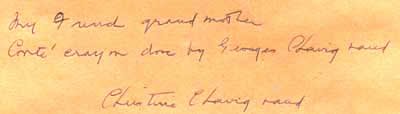 My French grandmother
Conté crayon done by Georges Chavignaud
Christine Chavignaud